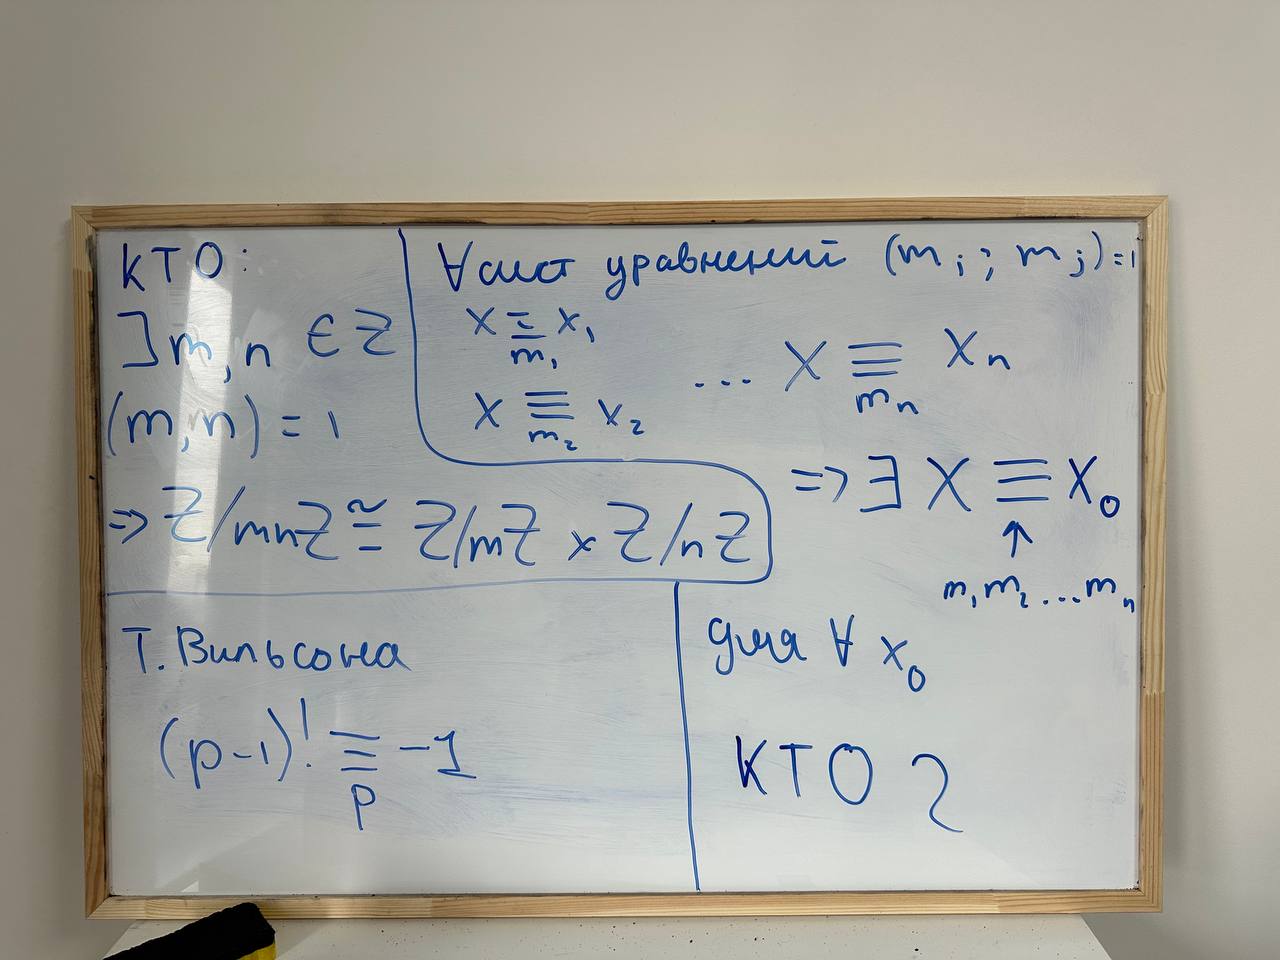 КТО:
∃ m,n ∈ Z
(m,n) = 1
=> Z/mnZ ≅ Z/mZ × Z/nZ
∀ сист уравнений (m i ; m j) = 1
X ≡ x₁
m₁
X ≡ x₂
m₂
... X ≡ Xn
mn
=> ∃ X ≡ X₀
↑
m₁m₂...mₙ
для ∀ x₀
КТО 2
Т. Вильсона
(p-1)! ≡ -1
p